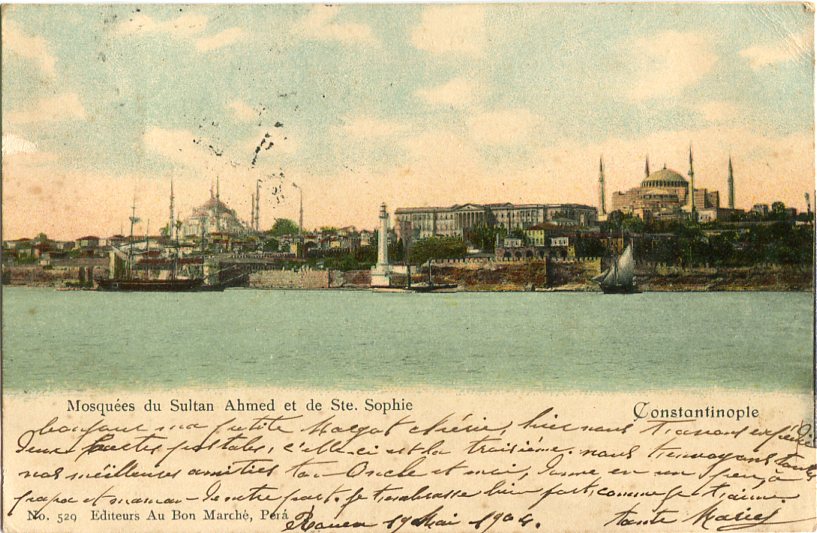 Mosquées du Sultan Ahmed et de Ste. Sophie
Constantinople
bonjour ma petite Margot chérie, hier nous t'avons expédié
deux cartes postales, celle-ci est la troisième. nous t'envoyons toutes
nos meilleures amitiés ton Oncle et moi, donne en un peu à
papa et maman - de notre part. Je t'embrasse bien fort, comme je t'aime.
No. 529 Editeurs Au Bon Marché, Pera
Rouen 19 Mai 1904.
tante Marie